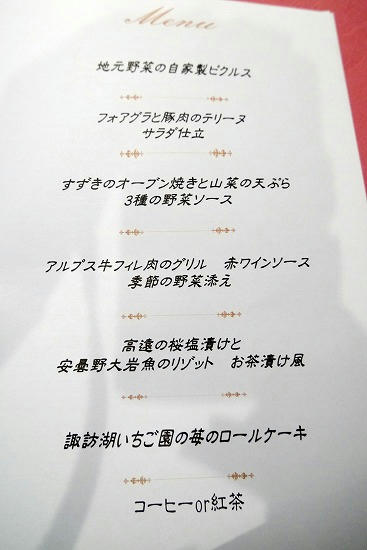 Menu
地元野菜の自家製ピクルス
フォアグラと豚肉のテリーヌ
サラダ仕立
すずきのオーブン焼きと山菜の天ぷら
3種の野菜ソース
アルプス牛フィレ肉のグリル　赤ワインソース
季節の野菜添え
高遠の桜塩漬けと
安曇野大岩魚のリゾット　お茶漬け風
諏訪湖いちご園の苺のロールケーキ
コーヒーor紅茶